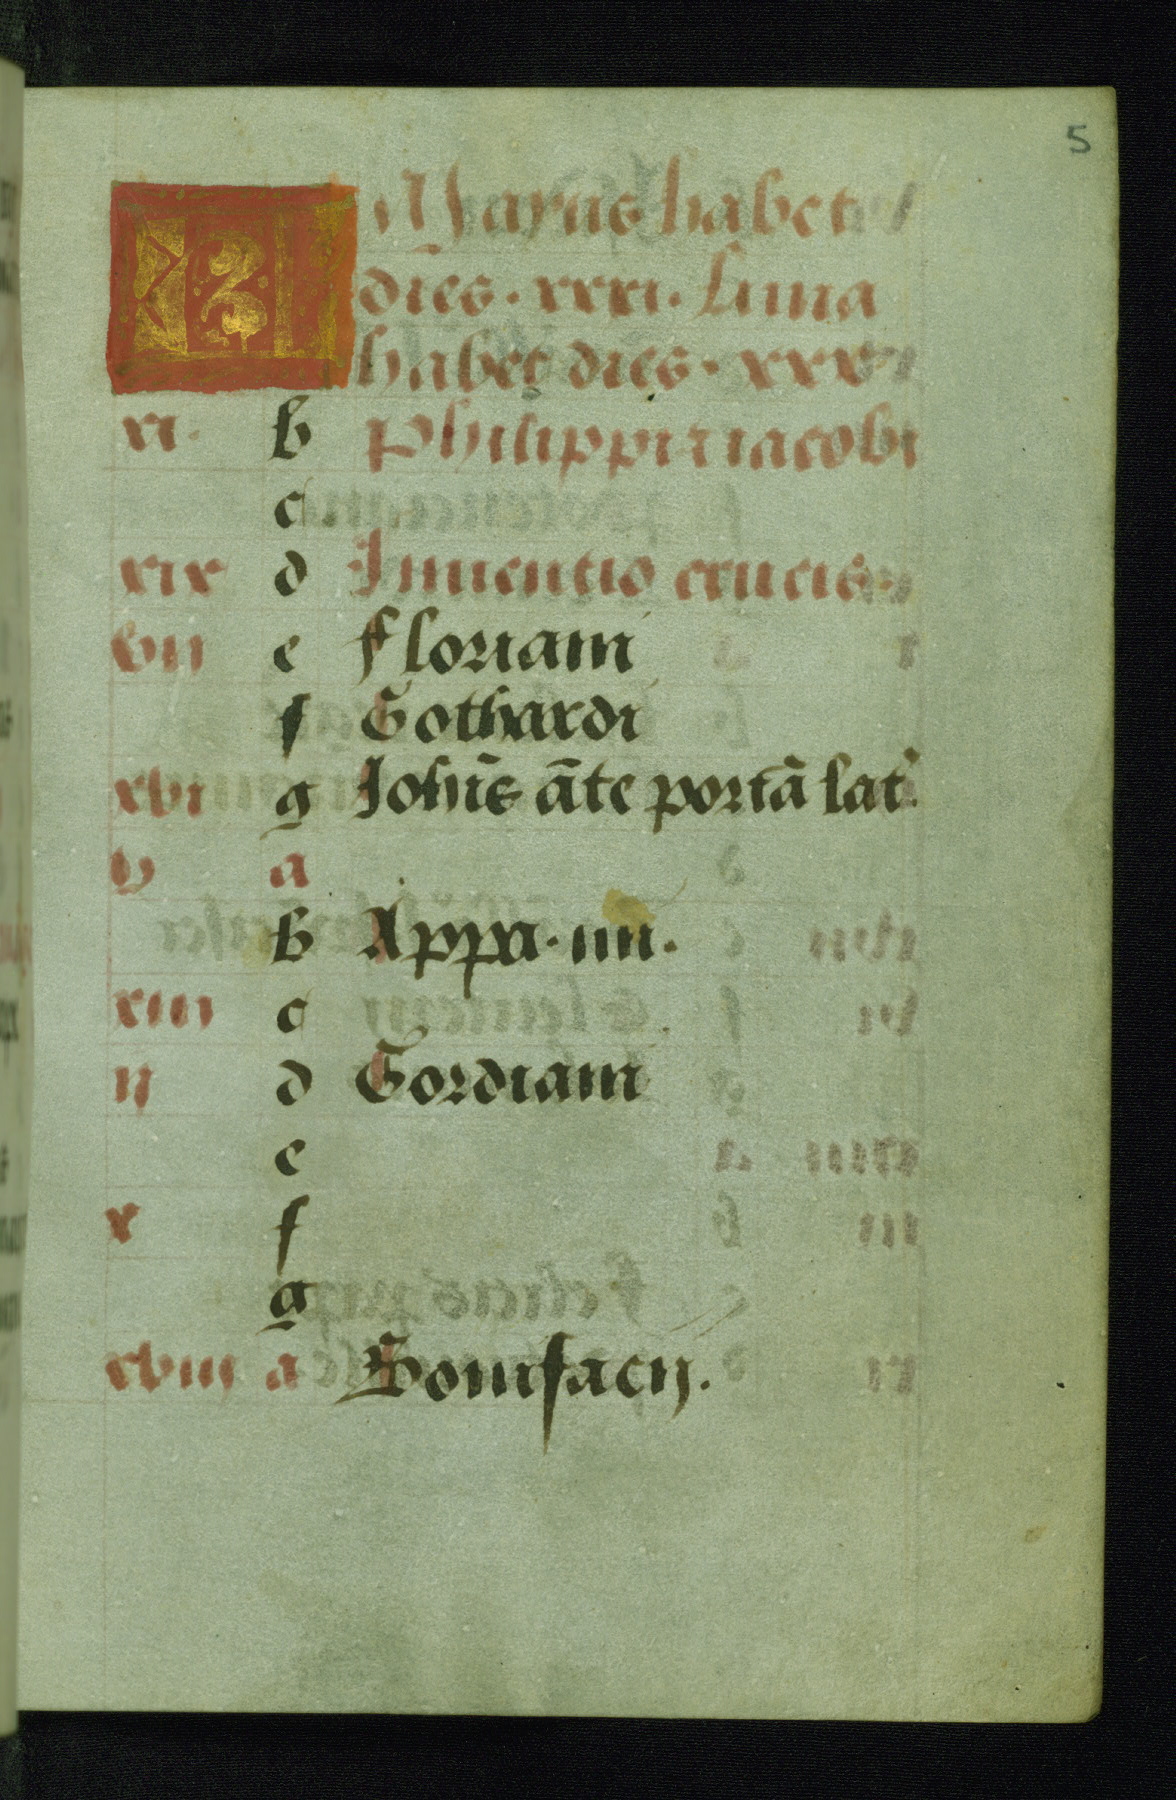 5
KL Mayus habet
dies. xxxi. Luna
habet dies. xxx
xi. b Philippi et iacobi
c
xix d Inuentio crucis.
vii e Floriani
f Gothardi
xvi g Joh̄is āte portā lat'.
a
b Appa. iiii.
xiii c
ii d Gordiani
e
x f
g
xviii a Bonifacij.